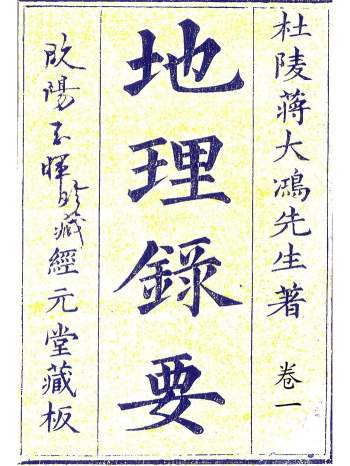 杜陵蔣大鴻先生著
卷一
地理錄要
陽藏經元堂藏板